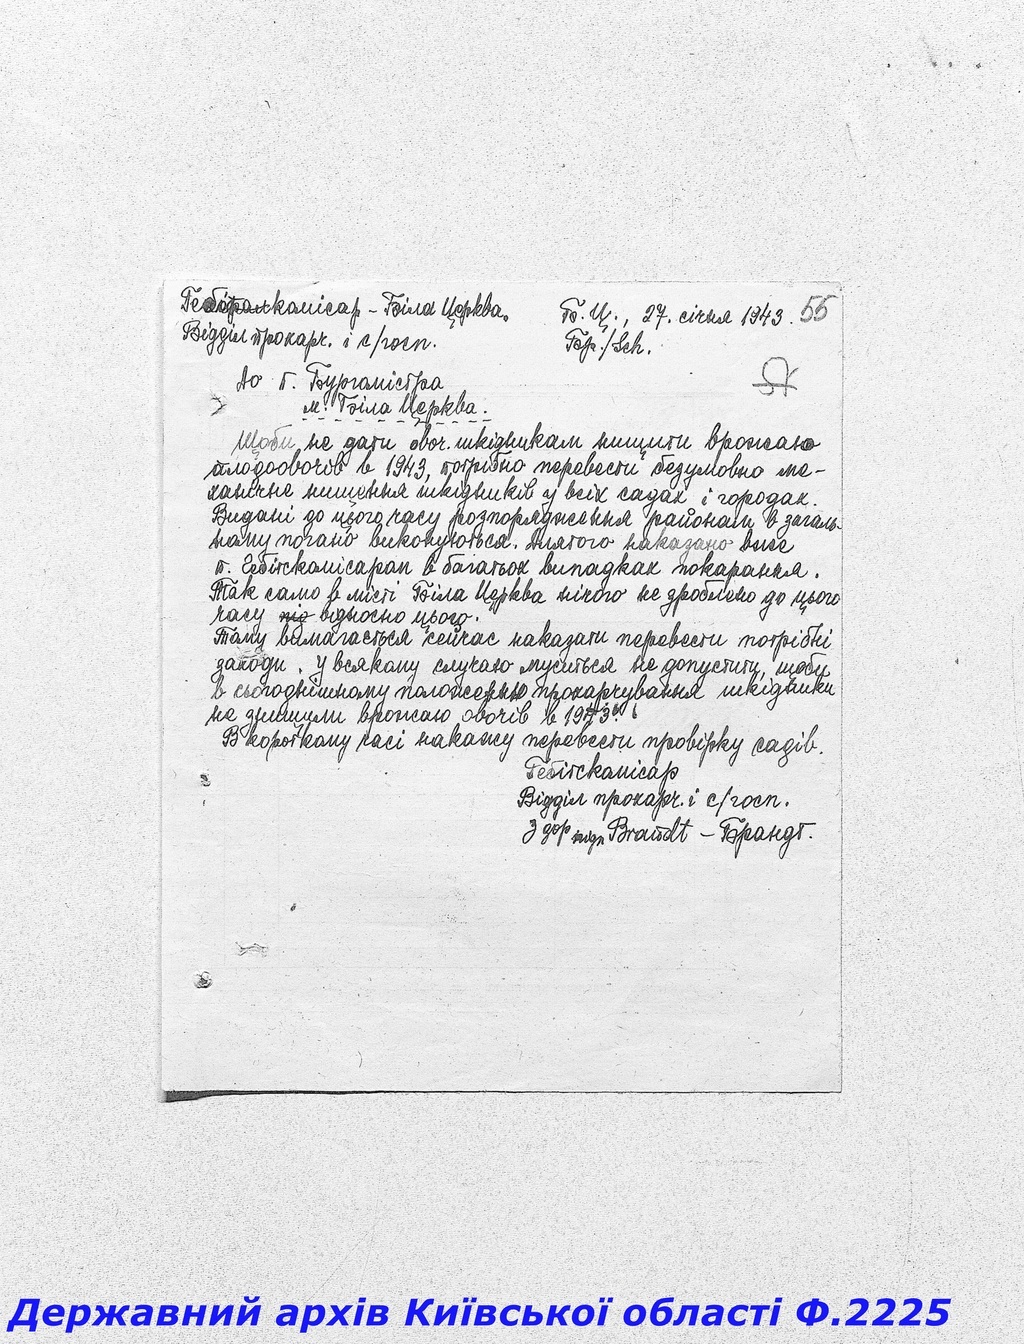 Гебітскомісар – Біла Церква.
Відділ прохарч. і с/госп.
Б. Ц., 27. січня 1943. 55
Бр./Sch.
До п. Бургомістра
м. Біла Церква.
Щоби не дати овоч. шкідникам нищити врожаю
плодоовочів в 1943, потрібно перевести безумовно ме-
ханічне нищення шкідників у всіх садах і городах.
Видані до цього часу розпорядження районам в загаль-
ному погано виконуються. Длятого наказано вже
п. Гебітскомісаром в багатьох випадках покарання.
Так само в місті Біла Церква нічого не зроблено до цього
часу відносно цього.
Тому вимагається сейчас наказати перевести потрібні
заходи. У всякому случаю муситься не допустити, щоби
в сьогоднішному положенню прохарчування шкідники
не знищили врожаю овочів в 1943.
В короткому часі накажу перевести провірку садів.
Гебітскомісар
Відділ прохарч. і с/госп.
З дор підп Brandt – Брандт.
Державний архів Київської області Ф.2225